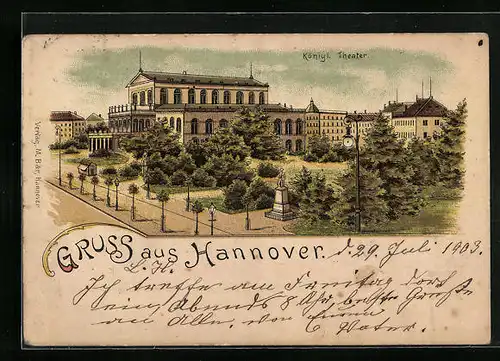 Königl. Theater
Verlag M. Bär, Hannover
GRUSS aus HANNOVER.
d. 29. Juli 1903.
L. H.
Ich treffe am Freitag dort
ein Abends 8 Uhr, beste Grüße
an Alle, von
Vater.